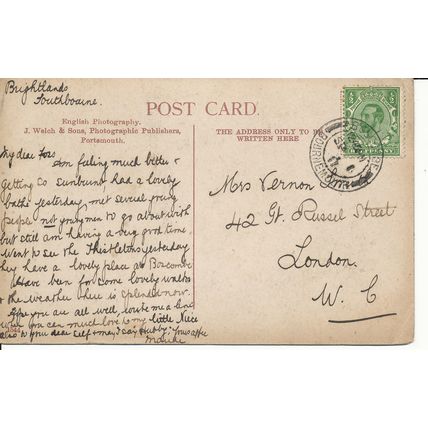 Brightlands
Southbourne.
POST CARD.
English Photography.
J. Welch & Sons, Photographic Publishers,
Portsmouth.
THE ADDRESS ONLY TO BE
WRITTEN HERE
My dear
am feeling much better &
getting so sunburnt had a lovely
bathe yesterday, met several young
people not young men to go about with
but still am having a very good time.
Went to see the Thistletons yesterday
they have a lovely place at Boscombe
Have been for some lovely walks
& the weather here is splendid now.
Hope you are all well, write me a line
when you can much love to my little Niece
also to your dear self & may I say Hubby. Yours affe
Mrs Vernon
42 Gt. Russel Street
London.
W. C
BOURNEMOUTH